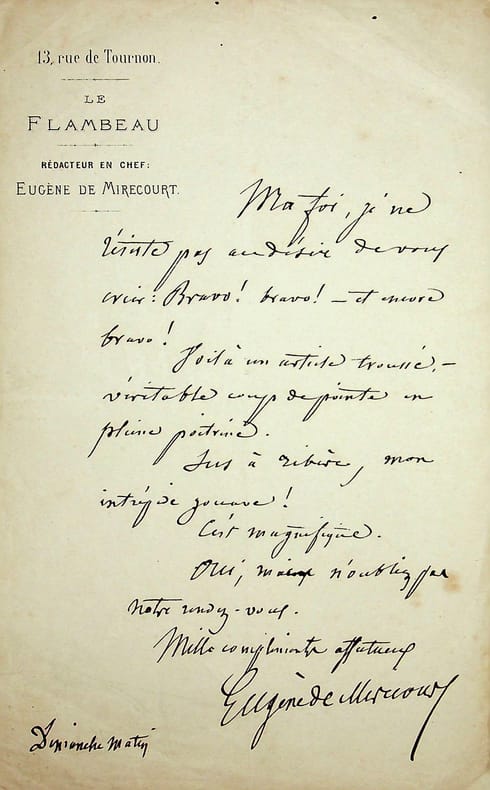 13, rue de Tournon.
LE
FLAMBEAU
RÉDACTEUR EN CHEF:
EUGÈNE DE MIRECOURT.
Ma foi, je ne
résiste pas au désir de vous
crier: Bravo! bravo! — et encore
bravo!
Voilà un article troussé, —
véritable coup de pointe en
pleine poitrine.
Sus à Ribère, mon
intrépide zouave!
C'est magnifique.
Oui, mais n'oubliez pas
notre rendez-vous.
Mille compliments affectueux
Eugène de Mirecourt
Dimanche matin